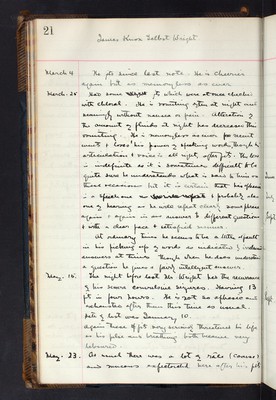 21
James Knox Talbot Wright
March 4 No fits since last note. He is cheerier
again but as memoryless as ever
March 25 Had some slight fits which were at once checked
with chloral. He is vomiting often at night and
seemingly without nausea or pain. Alteration of
the amount of fluids at night has decreased this
vomiting. He is memoryless as ever for recent
events & loses his power of speaking words, though his
articulation & voice is all right, after fits. The loss
is indefinite as it is sometimes difficult to be
quite sure he understands what is said to him on
these occasions but it is certain that his aphasia
is a speech one & probably also
one of hearing as he will repeat clearly some phrase
again & again in answer to different questions
& with a clear face & satisfied
At ordinary times he seems to be a little
in his picking up of words as indicated by
answers at times though when he does understand
a question he gives a fairly intelligent answer.
May. 15. The night before last Mr Wright had the recurrence
of his severe convulsive seizures. Having 13
fits in four hours. He is not so aphasic and
exhausted after them this time as usual.
Date of last was January 10.
again these fits very serious threatened his life
as his pulse and breathing both became very
laboured.
May. 23. As usual there was a lot of râle (coarse)
and mucous expectorated here after his fits